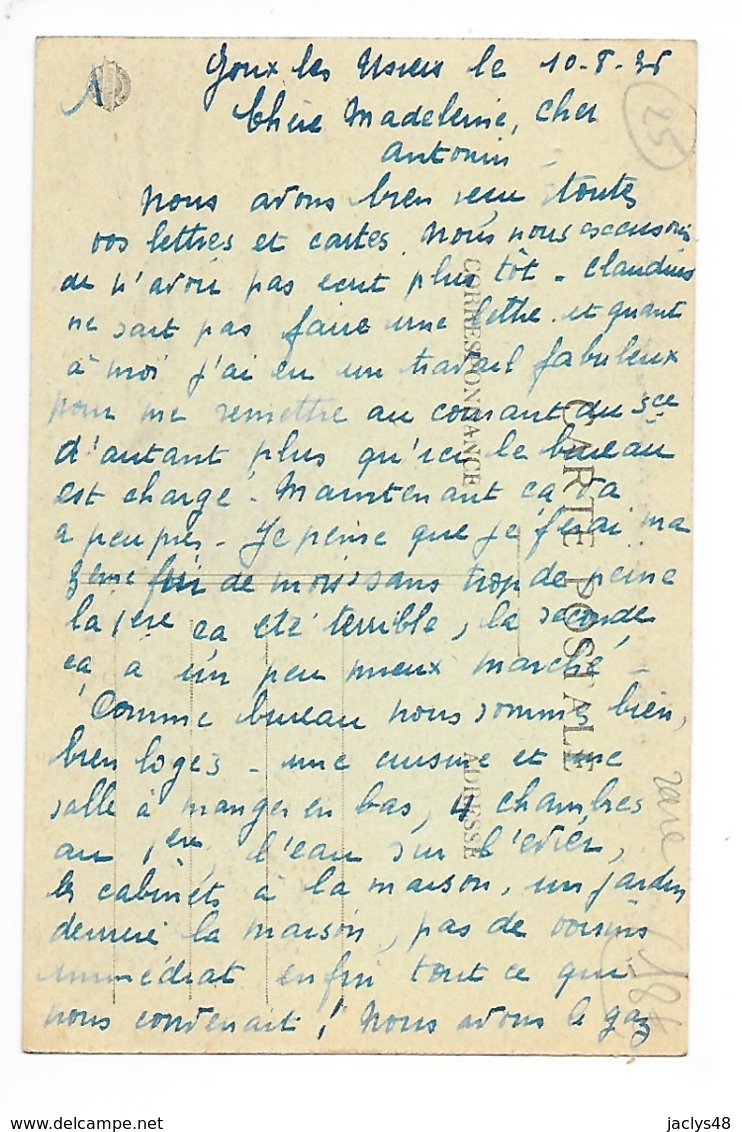 1
Goux les Usiers le 10-8-35
25
Chère Madeleine, Cher
Antonin
Nous avons bien reçu toutes
vos lettres et cartes. Nous nous excusons
de n'avoir pas écrit plus tôt - Claudius
ne sait pas faire une lettre et quant
à moi j'ai eu un travail fabuleux
pour me remettre au courant du sce
d'autant plus qu'ici le bureau
est chargé. Maintenant ça va
a peu près - Je pense que je ferai ma
3eme fin de mois sans trop de peine
la 1ere ça été terrible, la seconde
ça a un peu mieux marché -
Comme bureau nous sommes bien,
bien logés - une cuisine et une
salle à manger en bas, 4 chambres
au 1er, l'eau sur l'evier,
les cabinets à la maison, un jardin
derrière la maison, pas de voisins
immédiat enfin tout ce qui
nous convenait! Nous avons le gaz
CARTE POSTALE
CORRESPONDANCE
ADRESSE
rare
jaclys48